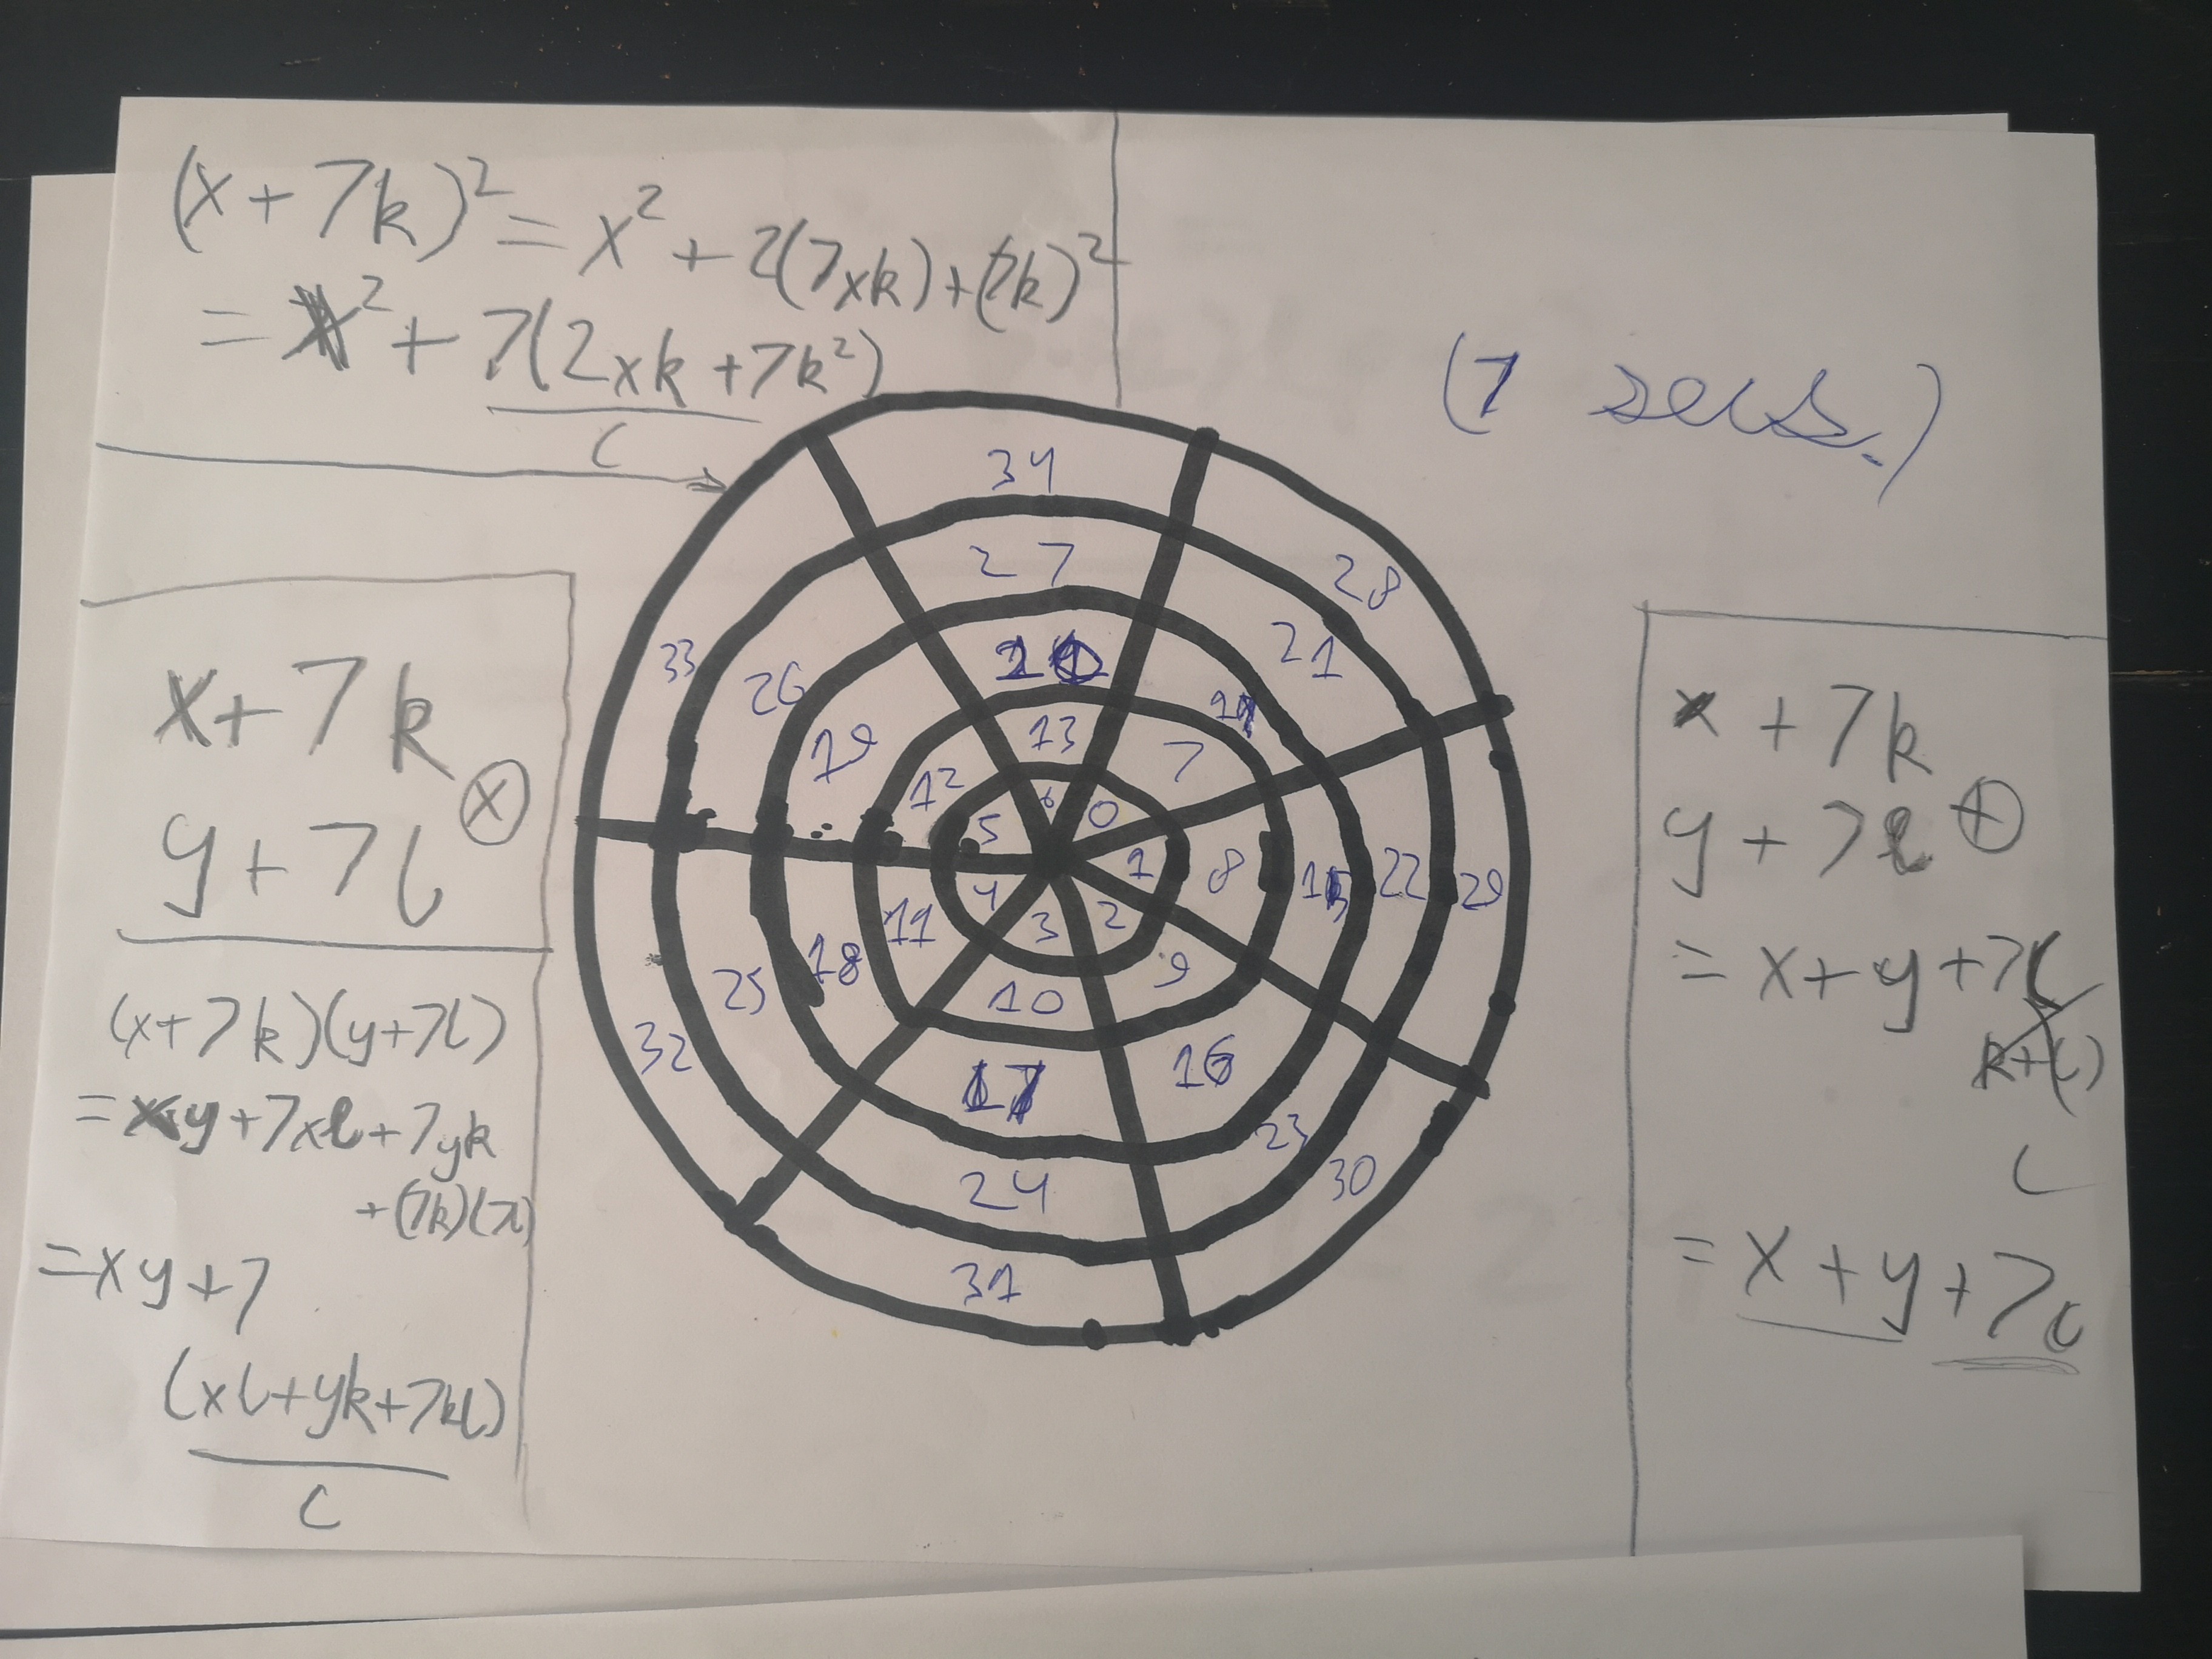 (x + 7k)² = x² + 2(7xk) + (7k)²
= x² + 7(2xk + 7k²)
c
(7 secs.)
34
27
28
21
33
26
20
14
19
13
7
12
6
0
5
1
8
15
22
29
4
3
2
11
18
25
32
10
9
17
16
24
23
30
31
x + 7k
y + 7l
⊗
(x + 7k)(y + 7l)
= xy + 7xl + 7yk
+ (7k)(7l)
= xy + 7
(xl + yk + 7kl)
c
x + 7k
y + 7l ⊕
= x + y + 7(
k + l)
c
= x + y + 7c